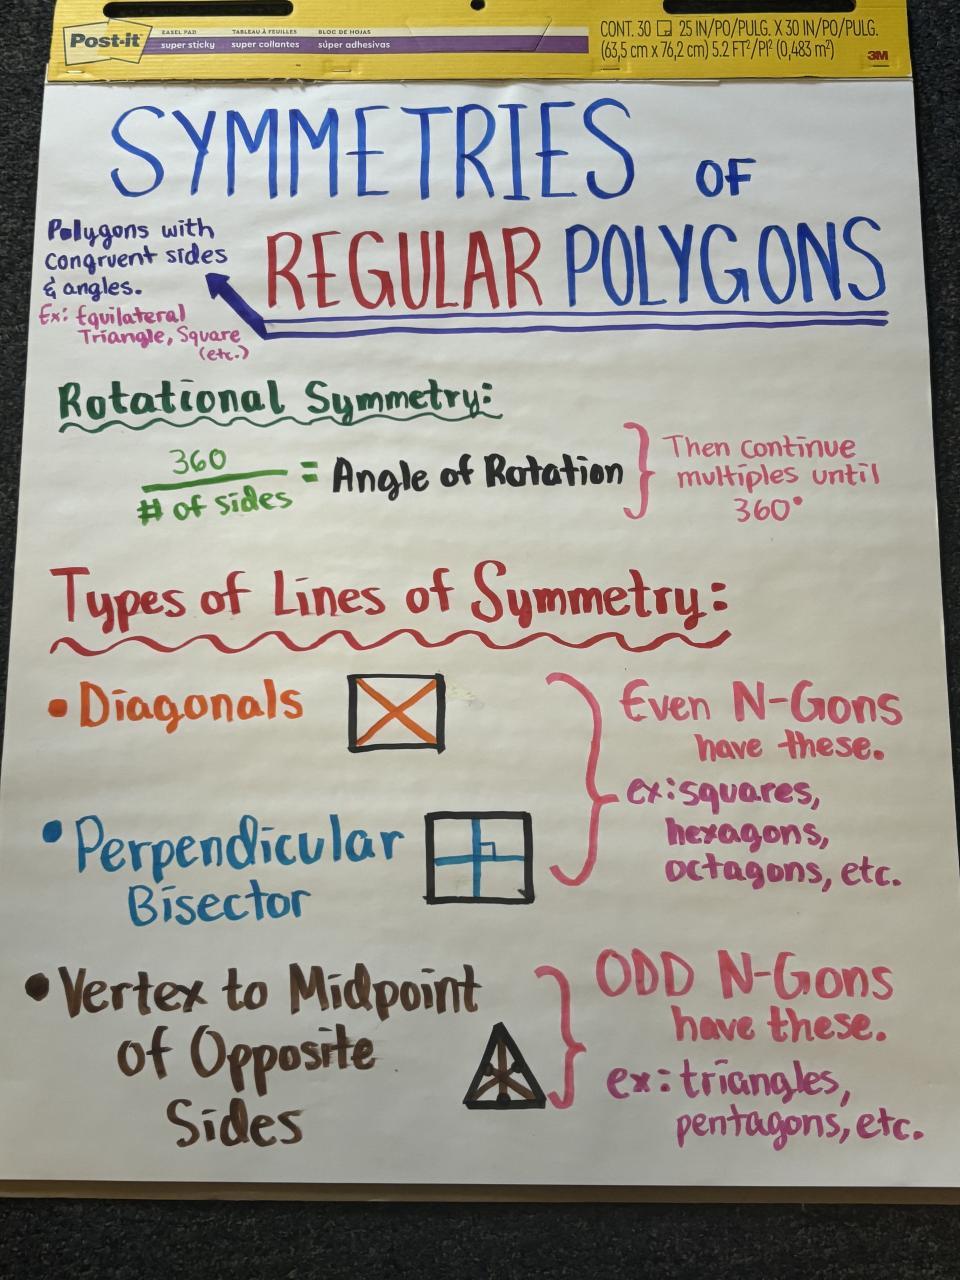 Post-it
EASEL PAD TABLEAU À FEUILLES BLOC DE HOJAS
super sticky super collantes súper adhesivas
CONT. 30 25 IN/PO/PULG. X 30 IN/PO/PULG.
(63,5 cm x 76,2 cm) 5.2 FT²/PI² (0,483 m²)
3M
SYMMETRIES OF
REGULAR POLYGONS
Polygons with
congruent sides
& angles.
Ex: Equilateral
Triangle, Square
(etc.)
Rotational Symmetry:
360
# of sides
= Angle of Rotation
Then continue
multiples until
360°
Types of Lines of Symmetry:
• Diagonals
• Perpendicular
Bisector
Even N-Gons
have these.
ex: squares,
hexagons,
octagons, etc.
• Vertex to Midpoint
of Opposite
Sides
ODD N-Gons
have these.
ex: triangles,
pentagons, etc.